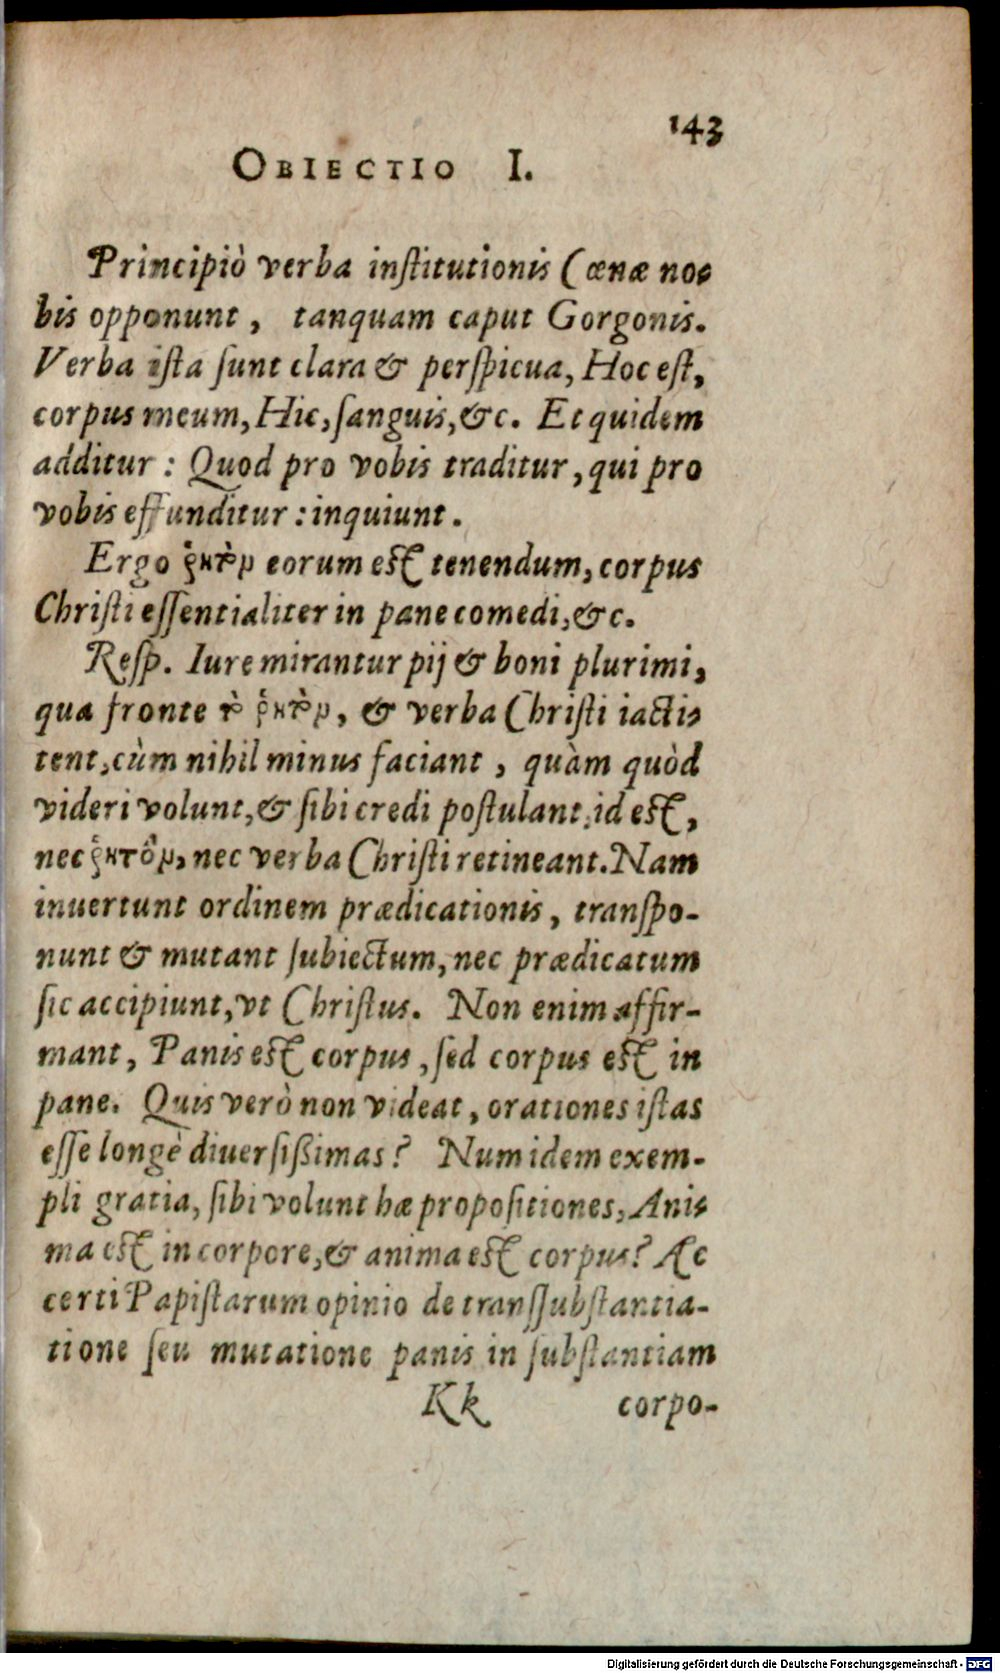 143
OBIECTIO I.
Principiò verba institutionis Cœnæ no-
bis opponunt, tanquam caput Gorgonis.
Verba ista sunt clara & perspicua, Hoc est,
corpus meum, Hic, sanguis, &c. Et quidem
additur: Quod pro vobis traditur, qui pro
vobis effunditur: inquiunt.
Ergo ῥητὸν eorum est tenendum, corpus
Christi essentialiter in pane comedi, &c.
Resp. Iure mirantur pij & boni plurimi,
qua fronte τὸ ῥητὸν, & verba Christi iacti-
tent, cùm nihil minus faciant, quàm quòd
videri volunt, & sibi credi postulant, id est,
nec ῥητὸν, nec verba Christi retineant. Nam
inuertunt ordinem prædicationis, transpo-
nunt & mutant subiectum, nec prædicatum
sic accipiunt, vt Christus. Non enim affir-
mant, Panis est corpus, sed corpus est in
pane. Quis verò non videat, orationes istas
esse longè diuersißimas? Num idem exem-
pli gratia, sibi volunt hæ propositiones, Ani-
ma est in corpore, & anima est corpus? Ac
certi Papistarum opinio de transsubstantia-
tione seu mutatione panis in substantiam
Kk corpo-
Digitalisierung gefördert durch die Deutsche Forschungsgemeinschaft - DFG